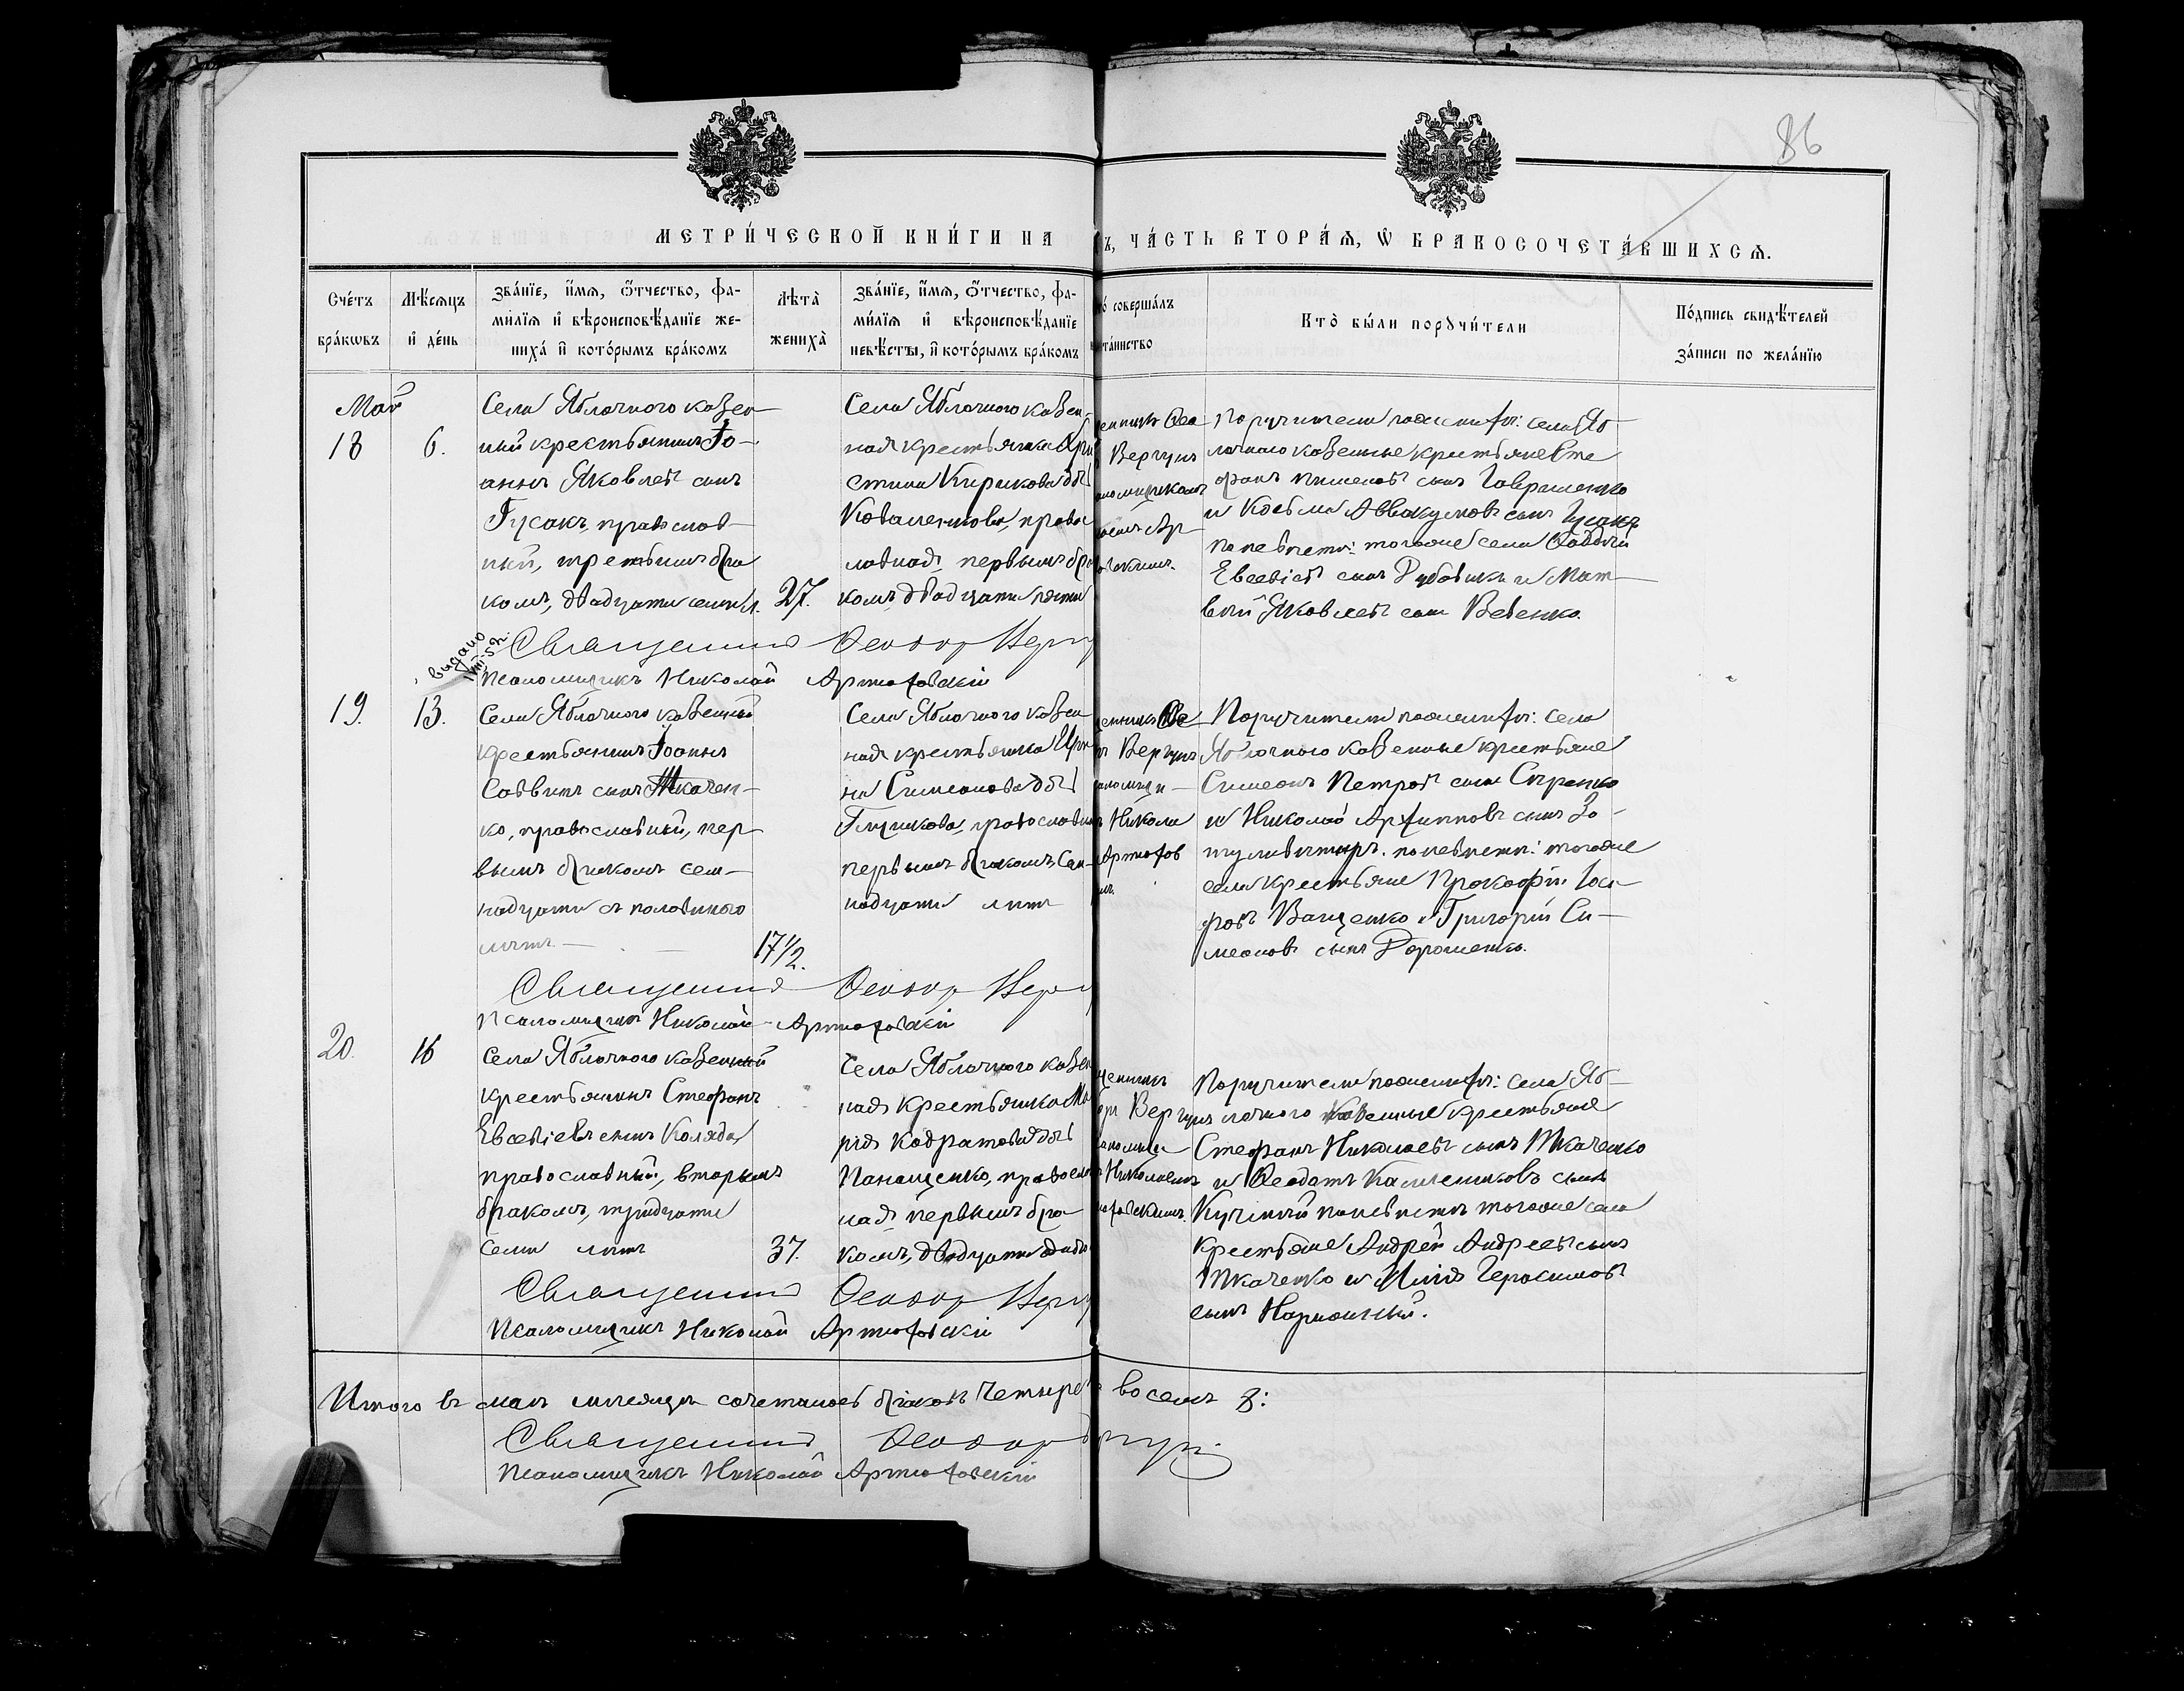 86
МЕТРИ́ЧЕСКОЙ КНИ́ГИ НА
Ъ, ЧА́СТЬ ВТОРА́Ѧ, Ѡ҆ БРАКОСОЧЕТА́ВШИХСѦ.
Сче́тъ
бра́кѡвъ
Мѣ́сѧцъ
и҆ де́нь
Зва́нїе, и҆́мѧ, ѻ҆́тчество, фа-
ми́лїѧ и҆ вѣроисповѣ́данїе же-
ниха́ и҆ кото́рымъ бра́комъ
Лѣ́та
жениха̀
Зва́нїе, и҆́мѧ, ѻ҆́тчество, фа-
ми́лїѧ и҆ вѣроисповѣ́данїе
невѣ́сты, и҆ кото́рымъ бра́комъ
то́ соверша́лъ
таинство
Кто̀ бы́ли порꙋчи́тели
По́дпись свидѣ́телей
за́писи по жела́нїю
Май
18 6.
Села Яблочного казен-
ный крестьянинъ Іо-
аннъ Яковлевъ сынъ
Гусакъ, православ-
ный, третьимъ бра
комъ, двадцати семи л. 27.
Села Яблочного казен-
ная крестьянка Хри
стина Кирикова дочь
Коваленкова, правос
лавная первымъ бра
комъ, двадцати пяти
Вергунъ
Поручители по женихѣ: села Яб-
лочного казенные крестьяне Сте
фанъ сынъ Гавриленко
и Косьма Аввакумовъ сынъ Гусакъ
по невѣстѣ: того же села Савва
Евсевіевъ сынъ и Мат-
вѣй Яковлевъ сынъ Вевенко.
видано
Священникъ Ѳеодоръ Верг
Псаломщикъ Николай Артюховскій
19. 13.
Села Яблочного казенный
крестьянинъ Іоаннъ
Саввинъ сынъ Ткачен-
ко, православный, пер-
вымъ бракомъ сем-
надцати съ половиною
лѣтъ 17 1/2.
Села Яблочного казен
ная крестьянка Ири
на Симеонова дочь
Глушкова, православн
первымъ бракомъ, сем-
надцати лѣтъ
Вергунъ
Никола
Артюхов
Поручители по женихѣ: села
Яблочного казенные крестьяне
Симеонъ Петровъ сынъ Сиренко
и Николай Архиповъ сынъ За-
по невѣстѣ: того же
села крестьяне Прокофій Іоси
фовъ Ващенко и Григорій Си-
меоновъ сынъ Дорошенко.
Священникъ Ѳеодоръ Верг
Псаломщикъ Николай Артюховскій
20. 16
Села Яблочного казенный
крестьянинъ Стефанъ
Евсевіевъ сынъ Коляда
православный, вторымъ
бракомъ, тридцати
семи лѣтъ 37.
Села Яблочного казен
ная крестьянка Ма
рія Кодратова дочь
Панащенко, правосла
ная первымъ бра
комъ, двадцати одно
Вергунъ
Николаемъ
Поручители по женихѣ: села Яб-
лочного казенные крестьяне
Стефанъ Николаевъ сынъ Ткаченко
и Ѳеодотъ сынъ
по невѣстѣ того же села
крестьяне Андрей Андреевъ сынъ
Ткаченко и Илія Герасимовъ
сынъ Нарижный.
Священникъ Ѳеодоръ Верг
Псаломщикъ Николай Артюховскій
Итого въ маѣ мѣсяцѣ сочеталось браковъ четыре восемъ 8:
Священникъ Ѳеодоръ Вергунъ
Псаломщикъ Николай Артюховскій